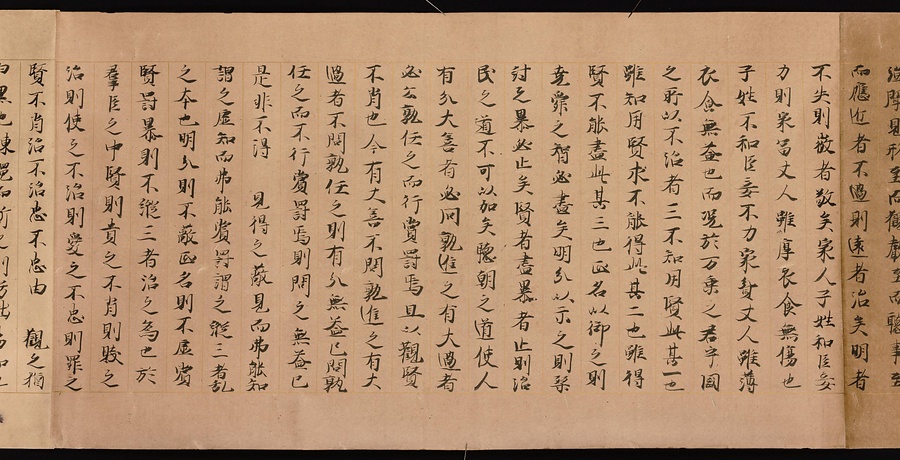 形至而觀聲至而聽事至
而應近者不過則遠者治矣明者
不失則微者敬矣家人子姓和臣妾
力則家富丈人雖厚衣食無傷也
子姓不和臣妾不力家貧丈人雖薄
衣食無益也而況於万乘之君乎國
之所以不治者三不知用賢此其一也
雖知用賢求不能得此其二也雖得
賢不能盡此其三也正名以御之則
堯舜之智必盡矣明分以示之則桀
紂之暴必止矣賢者盡暴者止則治
民之道不可以加矣聽朝之道使人
有分大善者必問孰進之有大過者
必公孰任之而行賞罰焉且以觀賢
不肖也今有大善不問孰進之有大
過者不問孰任之則有分無益已問孰
任之而不行賞罰焉則問之無益已
是非不得 見得之蔽見而弗能知
謂之虛知而弗能賞罰謂之縱三者乱
之本也明分則不蔽正名則不虛賞
賢罰暴則不縱三者治之為也於
羣臣之中賢則貴之不肖則賤之
治則使之不治則愛之不忠則罪之
賢不肖治不治忠不忠由 觀之猶
白黑也陳繩而斲之則巧拙易知也